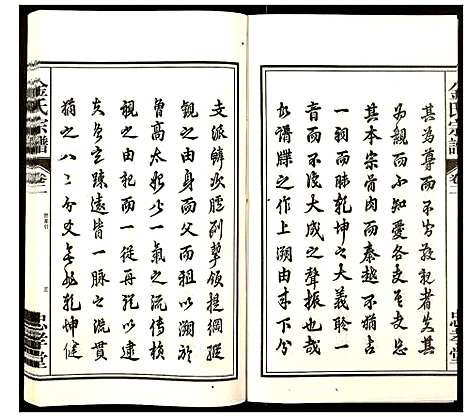 金氏宗譜
卷二
忠孝堂
其為尊而不肯敬親者失其
為親而不知愛各支其支忘
其本宗骨肉而秦越不猶占
一羽而昧乾坤之大義聆一
音而不浚大成之聲振也哉
於譜牒之作上溯由來下分
支派鱗次臚列挈領提綱縱
觀之由身而父而祖以溯於
曾高太始少一氣之流傳橫
視之由祀而一從再從以逮
於息疎遠皆一脉之流貫
猶之二分支無非乾坤健
金氏宗譜
卷二
忠孝堂